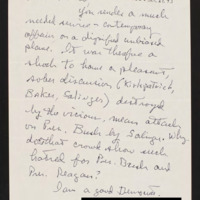 You render a much
needed service - contemporary
affairs on a dignified unbiased
plane. It was therefore a
shock to have a pleasant,
sober discussion (Kirkpatrick,
Baker, Salinger) destroyed
by the vicious, mean attack
on Pres. Bush by Salinger. Why
does that crowd show such
hatred for Pres. Bush and
Pres. Reagan?
I am a good Democrat.